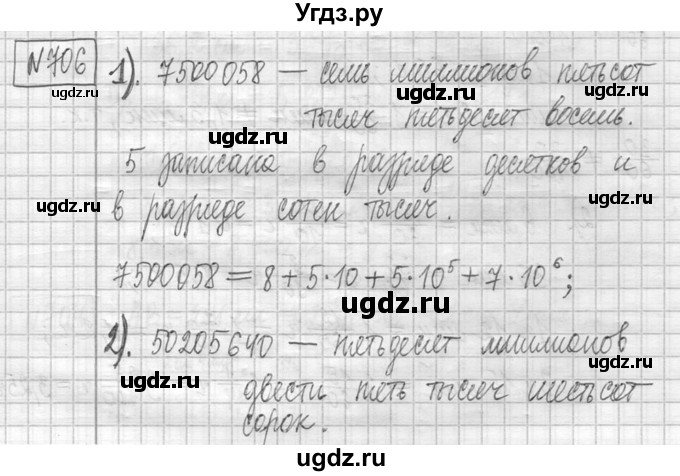 Угдз.ру
№706
1). 7500058 — семь миллионов пятьсот
тысяч пятьдесят восемь.
5 записана в разряде десятков и
в разряде сотен тысяч.
7500058 = 8 + 5·10 + 5·10⁵ + 7·10⁶;
2). 50205640 — пятьдесят миллионов
двести пять тысяч шестьсот
сорок.
ugdz.ru
ugdz.ru
ugdz.ru
ugdz.ru
ugdz.ru
ugdz.ru
ugdz.ru
ugdz.ru
ugdz.ru
ugdz.ru
ugdz.ru
ugdz.ru